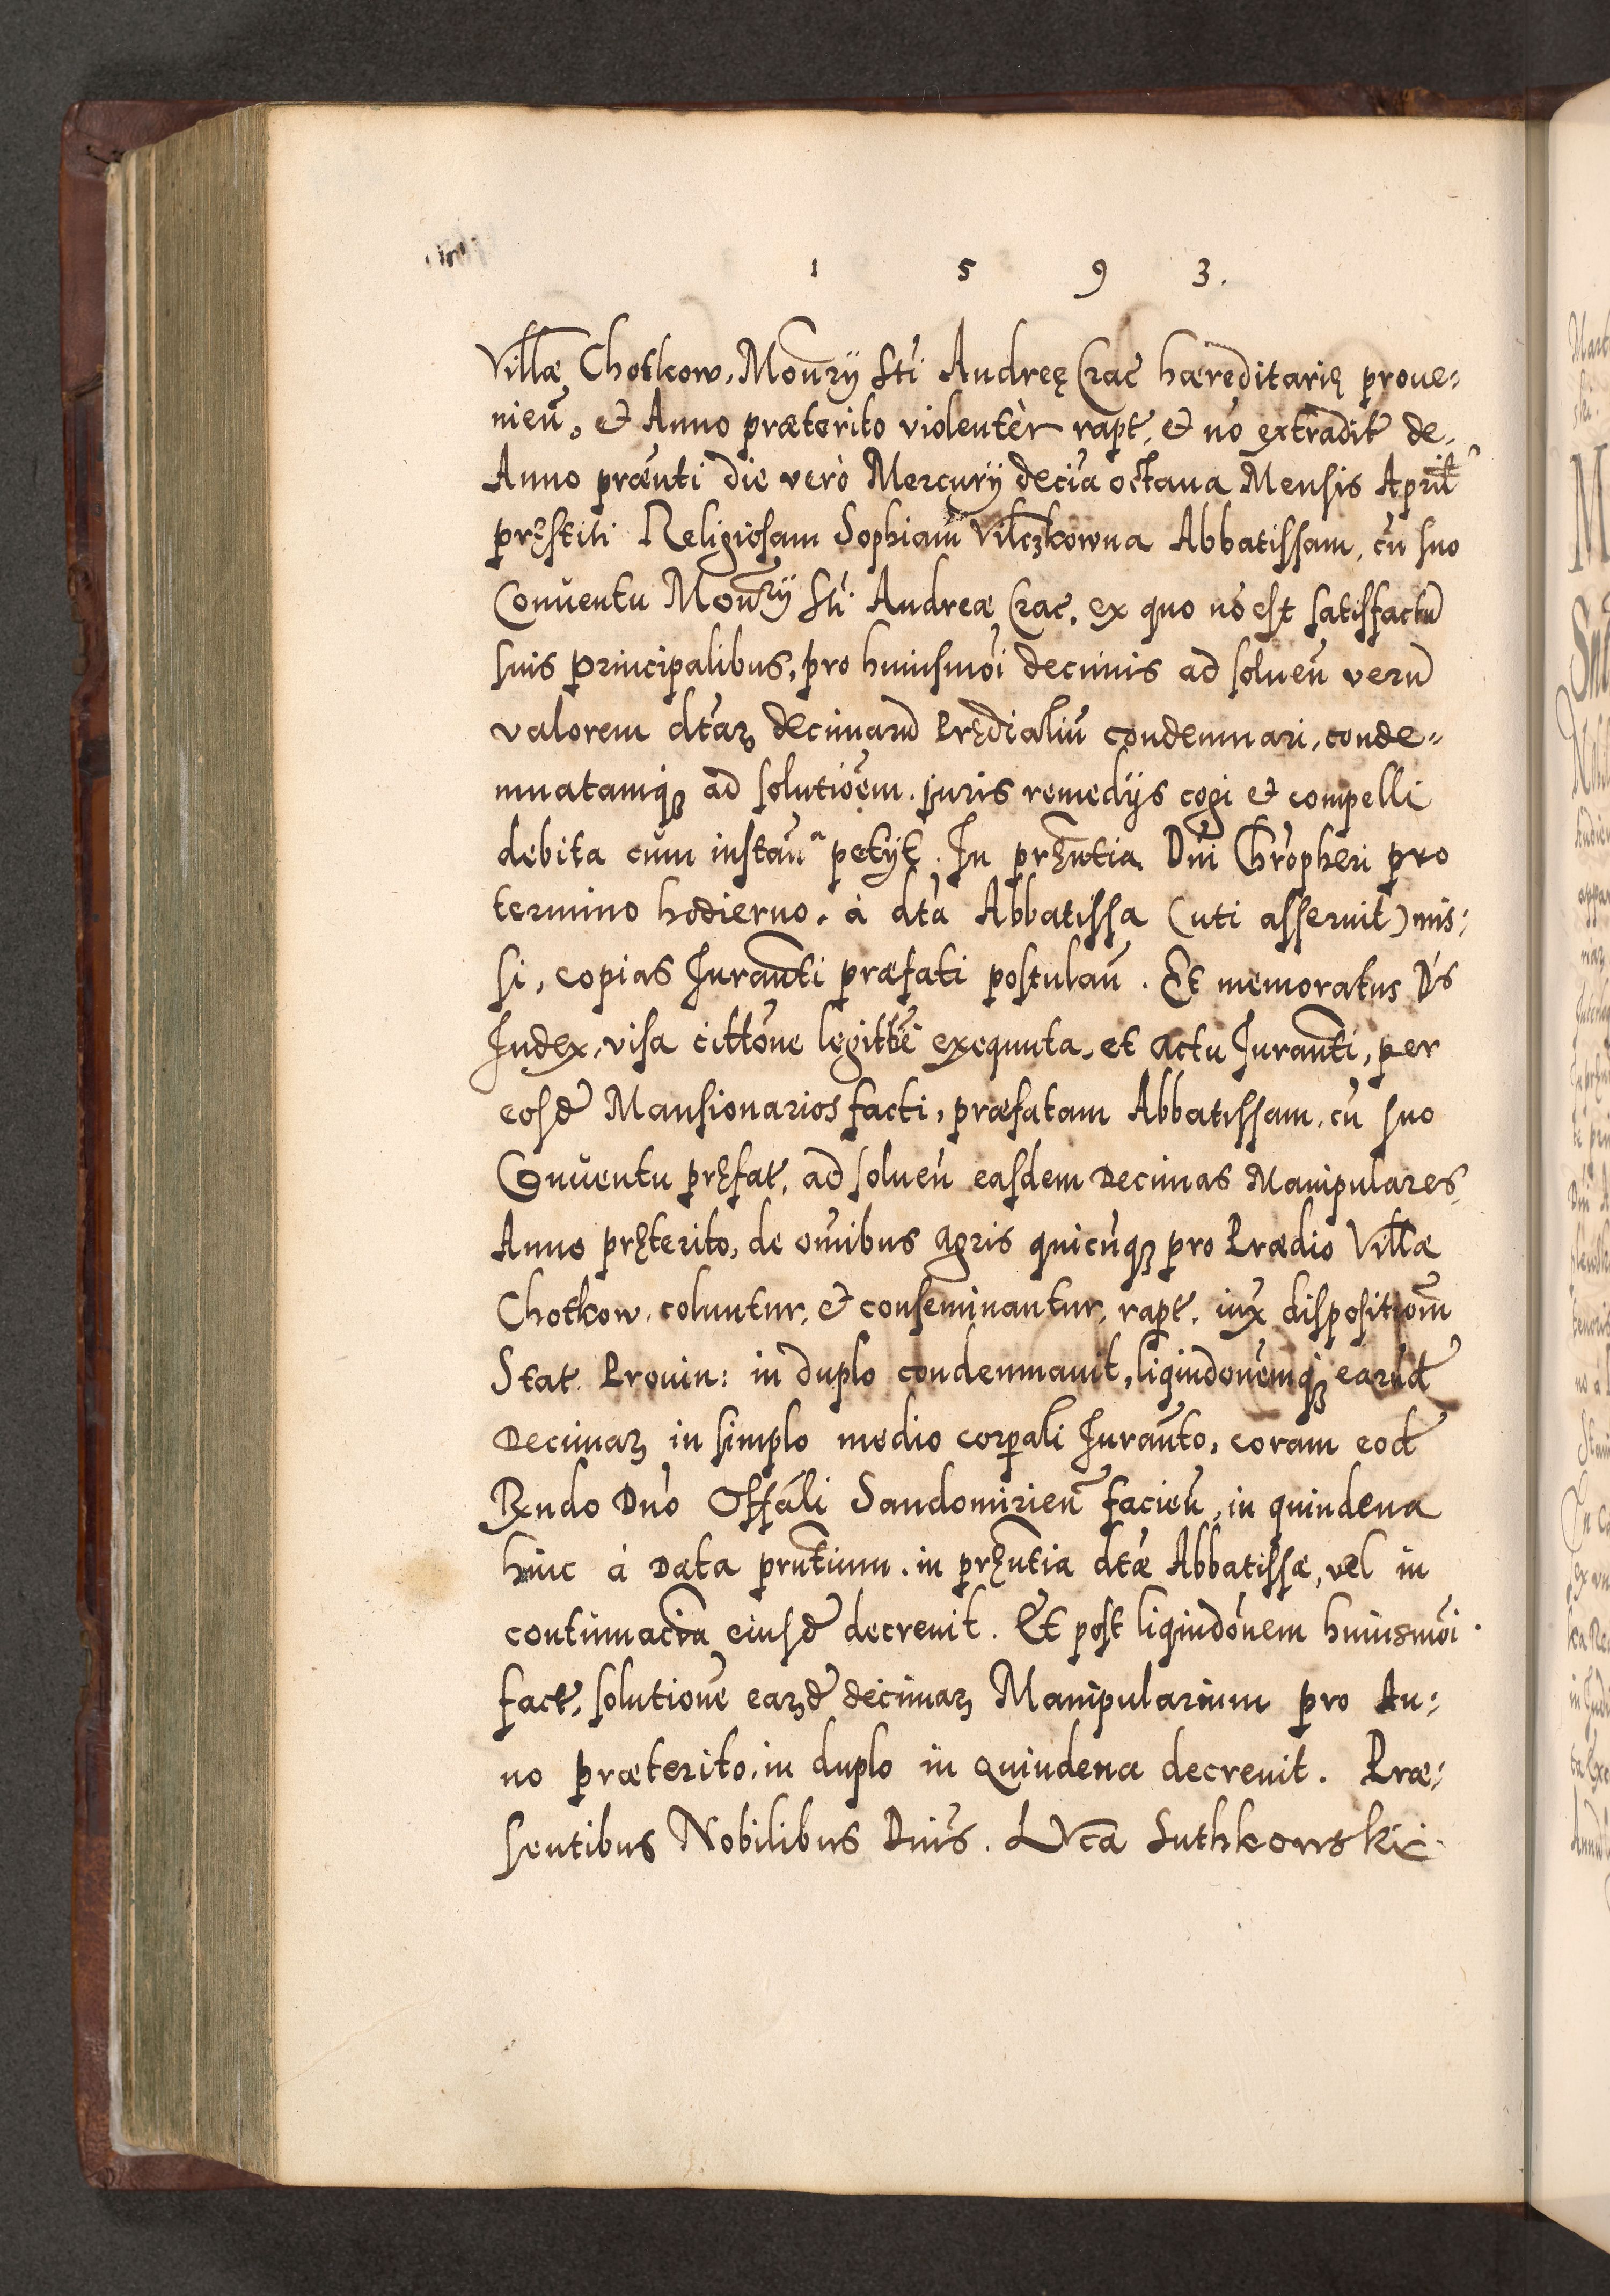 1 5 9 3.
Villæ Chotkow, Mon̄rÿ Sti Andreę Crac̄ hæreditarię proue⸗
nien̄, et Anno præterito violentèr rapt, et nō extradit de,
Anno præn̄ti die verò Mercurÿ deciā octaua Mensis April
pręstiti Religiosam Sophiam Vilczkowna Abbatissam, cū suo
Conuentu Mon̄rÿ Sti Andreæ Crac̄, ex quo nō est satisfactū
suis principalibus, pro huiusmōi decimis ad soluen̄ verū
valorem dtārꝫ decimarū Prędialiū condemnari, conde⸗
mnatamqꝫ ad solutiōem juris remedÿs cogi et compelli
debita cum instan̄ᵃ petÿt. In pręn̄tia Dn̄i Chrōpheri pro
termino hodierno, à dtā Abbatissa (uti asseruit) mis⸗
si, copias Juran̄ti præfati postulan̄. Et memoratus Dn̄s
Judex, visa cittōne legittē exequuta, et actu Juran̄ti, per
eosd̄ Mansionarios facti, præfatam Abbatissam, cū suo
Conuentu pręfat, ad soluen̄ easdem Decimas Manipulares,
Anno pręterito, de om̄ibus agris quicūqꝫ pro Prædio Villæ
Chotkow, coluntur, et conseminantur, rapt, iux̄ dispositiōm̄
Stat. Prouin: in duplo condemnauit, liquidōnemqꝫ earūd̄
Decimarꝫ in simplo medio corpali Juran̄to, coram eod̄
Rn̄do Dn̄o Offāli Sandomirien̄ facien̄, in quindena
hinc à Data prn̄tium, in pręn̄tia dtæ Abbatissæ, vel in
contumacia eiusd̄ decreuit. Et post liquidōnem huiusmōi
fact, solutionē earꝫd̄ decimarꝫ Manipularium pro An⸗
no præterito, in duplo in Quindena decreuit. Præ⸗
sentibus Nobilibus Dn̄is. Luca Suthkowski